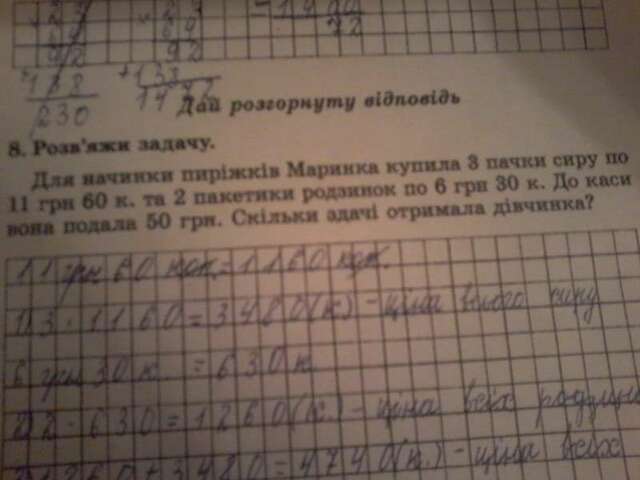 92
92
72
138
+138
230
1472
Дай розгорнуту відповідь
8. Розв'яжи задачу.
Для начинки пиріжків Маринка купила 3 пачки сиру по
11 грн 60 к. та 2 пакетики родзинок по 6 грн 30 к. До каси
вона подала 50 грн. Скільки здачі отримала дівчинка?
11 грн 60 коп.=1160 коп.
1) 3·1160=3480(к) - ціна всього сиру
6 грн 30 к. =630 к
2) 2·630=1260(к.) - ціна всіх родзинок
3) 1260+3480=4740(к.) - ціна всіх